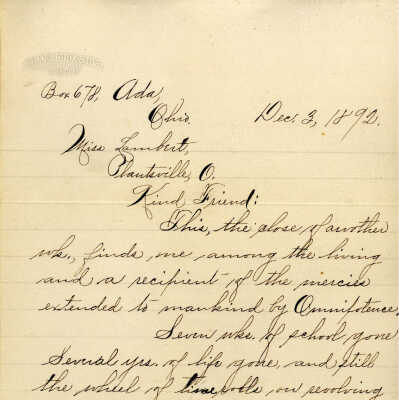 Box 678, Ada,
Ohio.
Dec. 3, 1892.
Miss Lambert,
Plantsville, O.
Kind Friend:
This, the close of another
wk., finds me among the living
and a recipient of the mercies
extended to mankind by Omnipotence.
Seven wks. of school gone
Several yrs. of life gone, and still
the wheel of time rolls on revolving